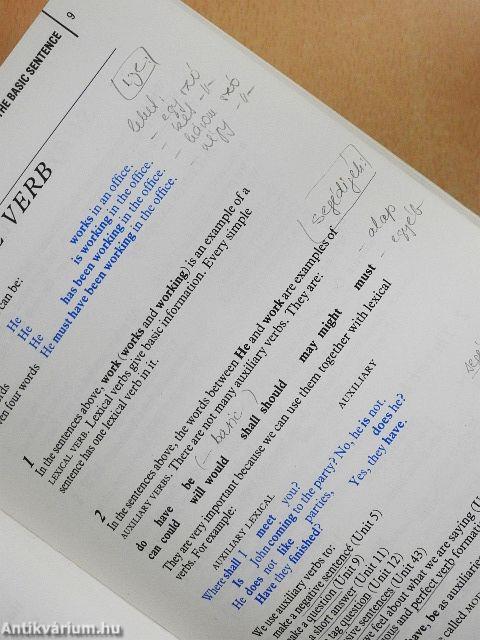 THE BASIC SENTENCE | 9
ige:
lehet:
- egy szó
- két -//-
- három szó
- négy -//-
VERB
can be:
He works in an office.
He is working in the office.
He has been working in the office.
He must have been working in the office.
words
ven four words
1
In the sentences above, work (works and working) is an example of a
LEXICAL VERB. Lexical verbs give basic information. Every simple
sentence has one lexical verb in it.
segédigék:
- alap
- egyéb
2
In the sentences above, the words between He and work are examples of
AUXILIARY VERBS. There are not many auxiliary verbs. They are:
do have be (- basic)
can could will would shall should may might must
They are very important because we can use them together with lexical
verbs. For example:
AUXILIARY LEXICAL AUXILIARY
Where shall I meet you?
Is John coming to the party? No, he is not.
He does not like parties, does he?
Have they finished? Yes, they have.
We use auxiliary verbs to:
make a negative sentence (Unit 5)
ake a question (Unit 9)
short answer (Unit 11)
tag question (Unit 12)
ve sentences (Unit 43)
feel about what we are saying (U
ous and perfect verb formatio
e, be as auxiliaries
called MO
Antikvárium.hu